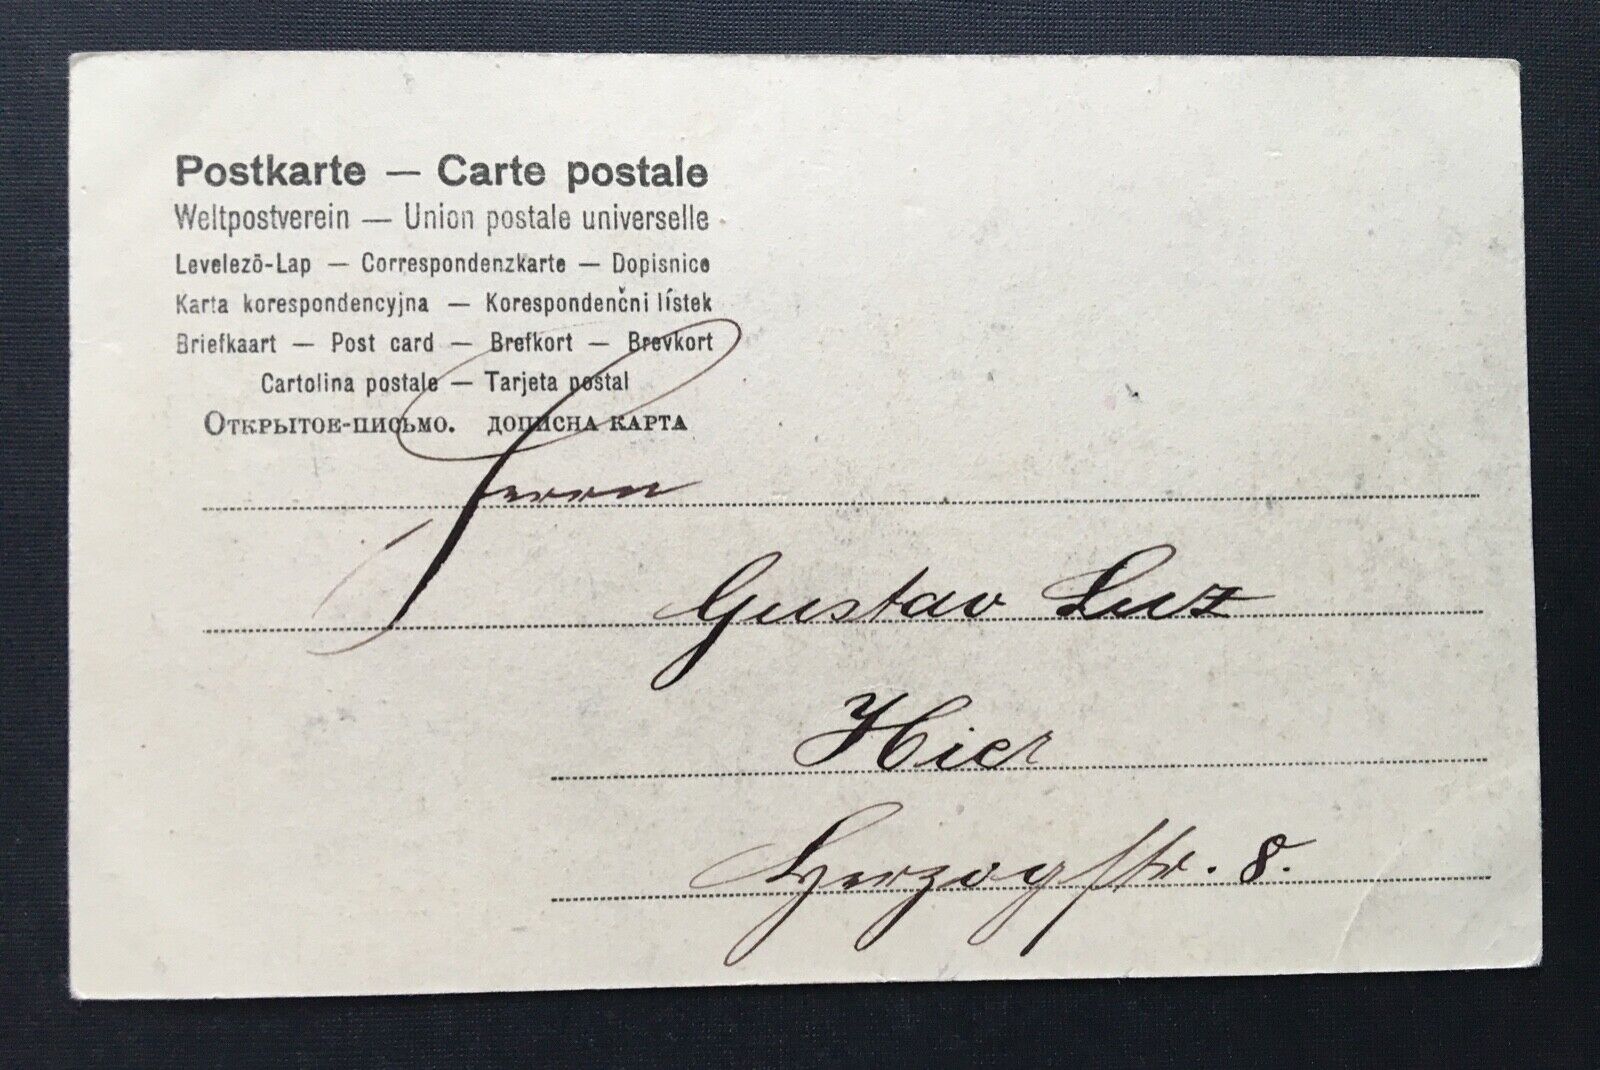 Postkarte — Carte postale
Weltpostverein — Union postale universelle
Levelezõ-Lap — Correspondenzkarte — Dopisnice
Karta korespondencyjna — Korespondenčni lístek
Briefkaart — Post card — Brefkort — Brevkort
Cartolina postale — Tarjeta postal
Открытое-письмо. дописна карта
Herrn
Gustav Luz
Hier
Herzogstr. 8.